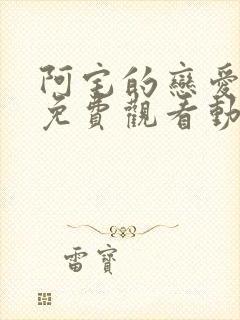 阿宝的戀愛
免費觀看動
雷寶